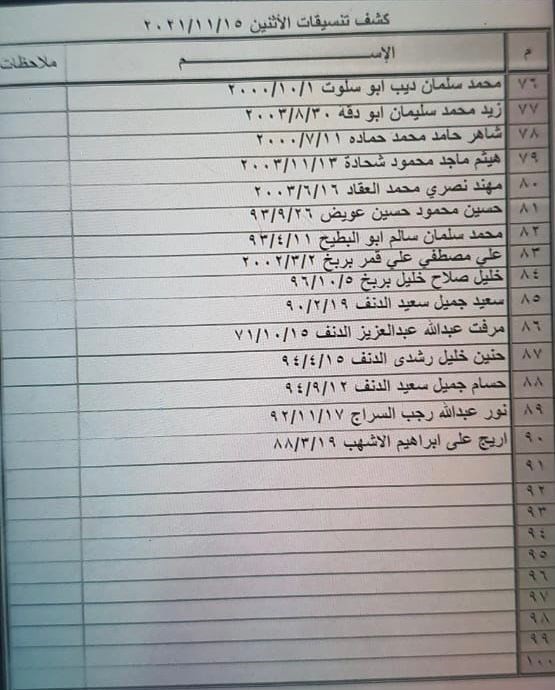 كشف تنسيقات الأثنين ٢٠٢١/١١/١٥
م الإســـــــم ملاحظات
٧٦ محمد سلمان ديب ابو سلوت ٢٠٠٠/١٠/١
٧٧ زيد محمد سليمان ابو دقة ٢٠٠٣/٨/٣٠
٧٨ شاهر حامد محمد حماده ٢٠٠٠/٧/١١
٧٩ هيثم ماجد محمود شحادة ٢٠٠٣/١١/١٣
٨٠ مهند نصري محمد العقاد ٢٠٠٣/٦/١٦
٨١ حسين محمود حسين عويض ٩٣/٩/٢٦
٨٢ محمد سلمان سالم ابو البطيخ ٩٣/٤/١١
٨٣ علي مصطفي علي قمر بريخ ٢٠٠٢/٣/٢
٨٤ خليل صلاح خليل بريخ ٩٦/١٠/٥
٨٥ سعيد جميل سعيد الدنف ٩٠/٢/١٩
٨٦ مرفت عبدالله عبدالعزيز الدنف ٧١/١٠/١٥
٨٧ حنين خليل رشدى الدنف ٩٤/٤/١٥
٨٨ حسام جميل سعيد الدنف ٩٤/٩/١٢
٨٩ نور عبدالله رجب السراج ٩٢/١١/١٧
٩٠ اريج على ابراهيم الاشهب ٨٨/٣/١٩
٩١
٩٢
٩٣
٩٤
٩٥
٩٦
٩٧
٩٨
٩٩
١٠٠